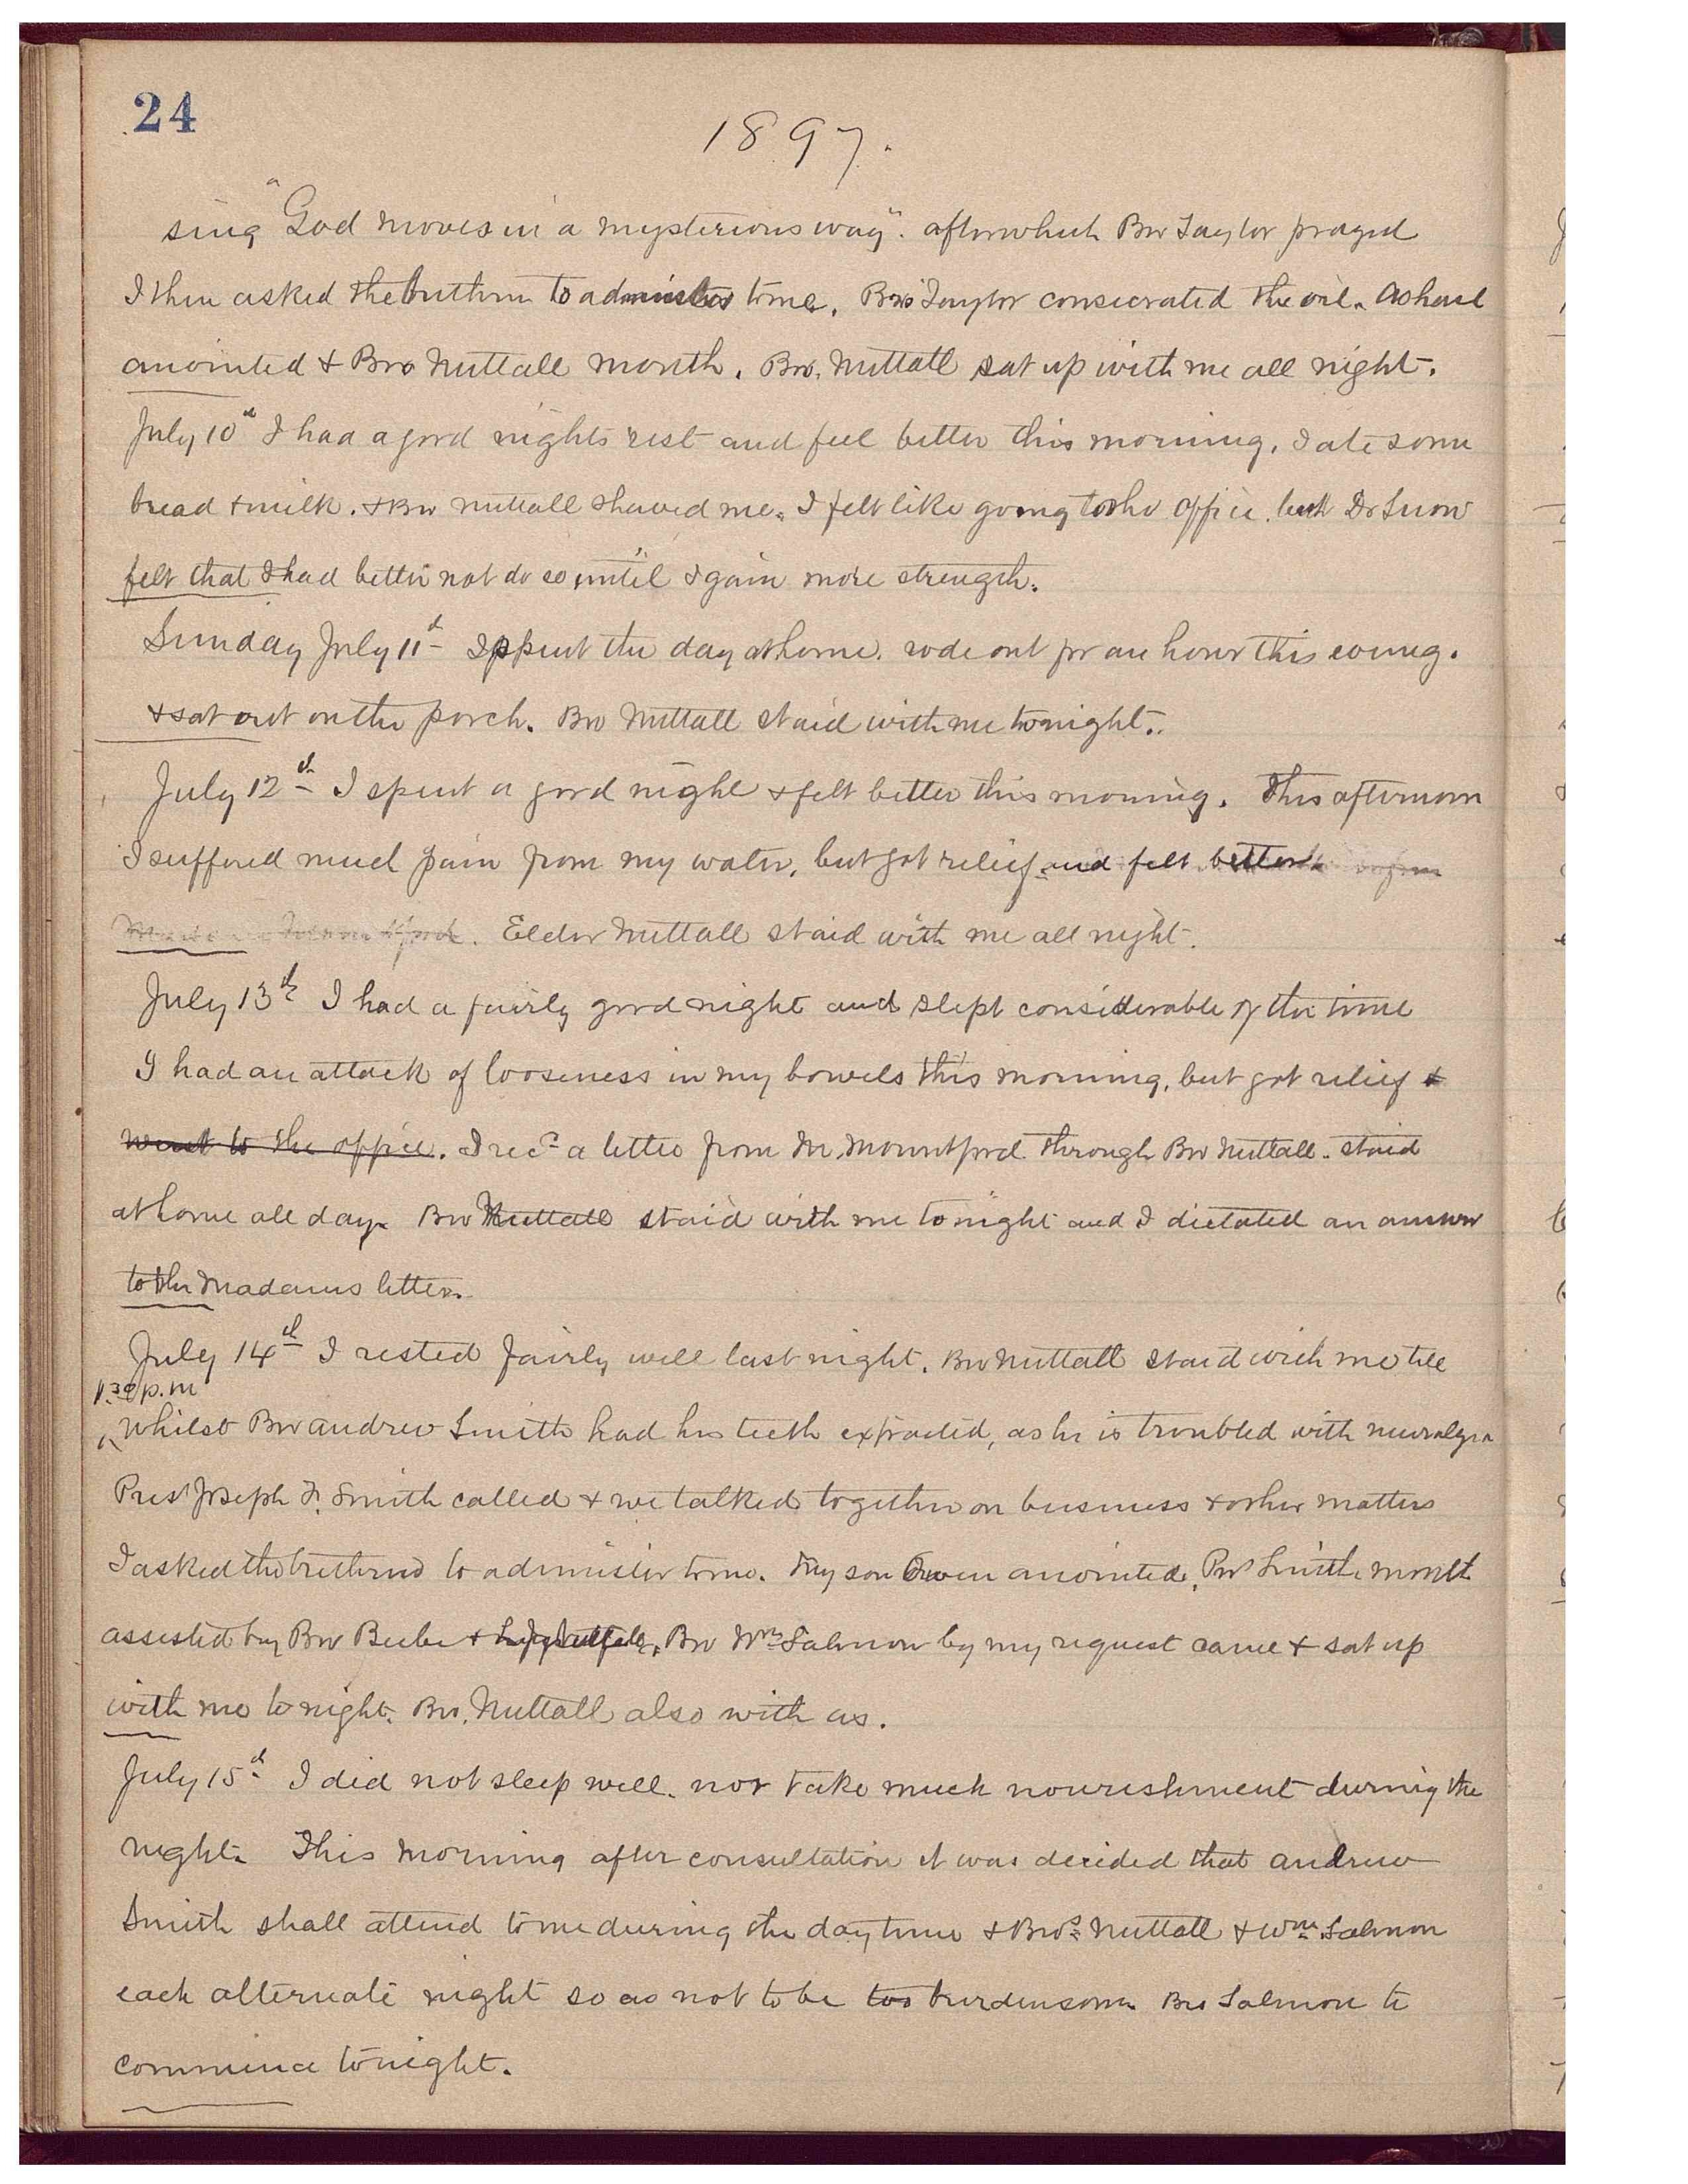 24
1897.
sing "God moves in a mysterious way". afterwhich Bro Taylor prayed
I then asked the brethren to administer to me. Bro Taylor consecrated the oil. Asahael
anointed & Bro Nuttall mouth. Bro. Nuttall sat up with me all night.
July 10th I had a good nights rest and feel better this morning. I ate some
bread & milk. & Bro Nuttall shaved me. I felt like going to the office. but Dr Snow
felt that I had better not do so, until I gain more strength.
Sunday July 11th I spent the day at home. rode out for an hour this evening.
& sat out on the porch. Bro Nuttall staid with me tonight.
July 12th I spent a good night & felt better this morning. This afternoon
I suffered much pain from my water, but got relief and felt better.
Elder Nuttall staid with me all night.
July 13th I had a fairly good night and slept considerable of the time
I had an attack of looseness in my bowels this morning, but got relief &
went to the office. I recd a letter from M. Mountford through Bro Nuttall. staid
at home all day. Bro Nuttall staid with me tonight and I dictated an answer
to the Madams letter.
July 14th I rested fairly well last night. Bro Nuttall staid with me till
1.30 p.m
whilst Bro Andrew Smith had his teeth extracted, as he is troubled with neuralgia
Prest Joseph F. Smith called & we talked together on business & other matters
I asked the brethren to administer to me. My son Owen anointed, Prest Smith mouth
assisted by Bro Beebe & L. Jno Nuttall. Bro Wm Salmon by my request came & sat up
with me to night. Bro. Nuttall also with us.
July 15th I did not sleep well. nor take much nourishment during the
night. This morning after consultation it was decided that Andrew
Smith shall attend to me during the day time & Bros Nuttall & Wm Salmon
each alternate night so as not to be too burdensome Bro Salmon to
commence tonight.